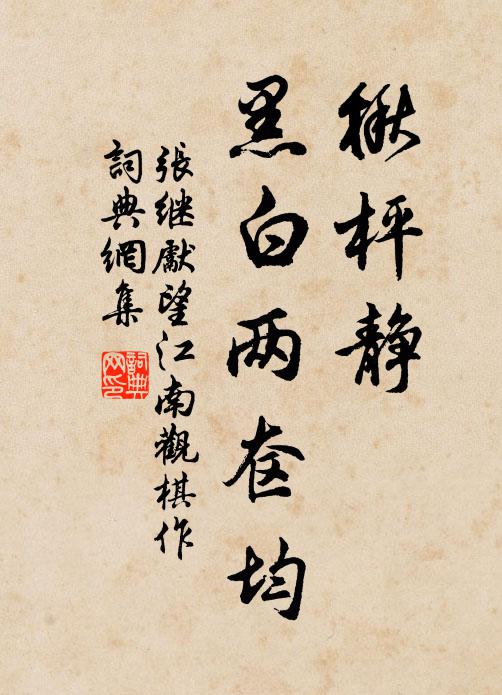 楸枰静
黑白两奁均
張继獻望江南觀棋作
詞典網集
詞典网印